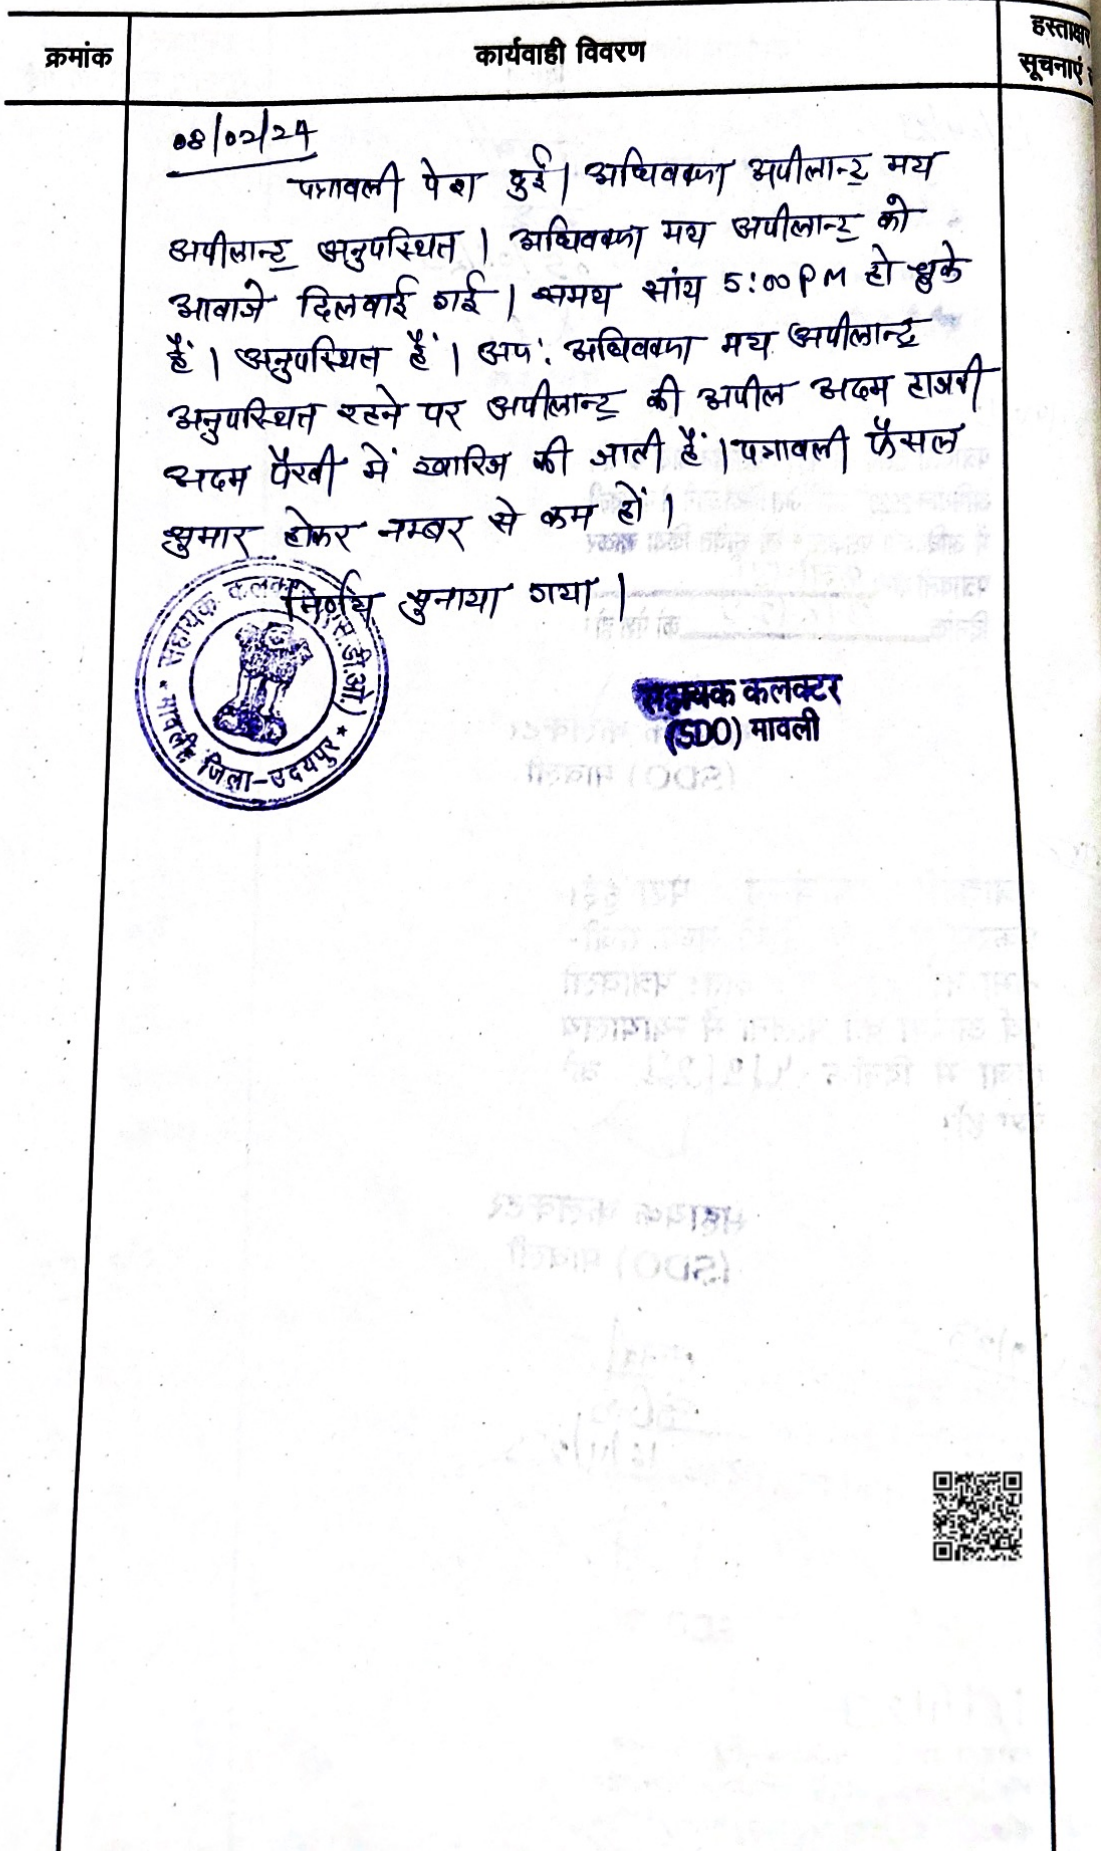 क्रमांक
कार्यवाही विवरण
हस्ताक्षर
सूचनाएं
08/02/24
पत्रावली पेश हुई। अधिवक्ता अपीलान्ट मय
अपीलान्ट अनुपस्थित। अधिवक्ता मय अपीलान्ट को
आवाजे दिलवाई गई। समय सांय 5:00 PM हो चुके
हैं। अनुपस्थित हैं। अत: अधिवक्ता मय अपीलान्ट
अनुपस्थित रहने पर अपीलान्ट की अपील अदम हाजरी
अदम पैरवी में खारिज की जाती हैं। पत्रावली फैसल
शुमार होकर नम्बर से कम हों।
निर्णय सुनाया गया।
सहायक कलक्टर
(SDO) मावली
सहायक कलक्टर (एस.डी.ओ.)
मावली, जिला-उदयपुर